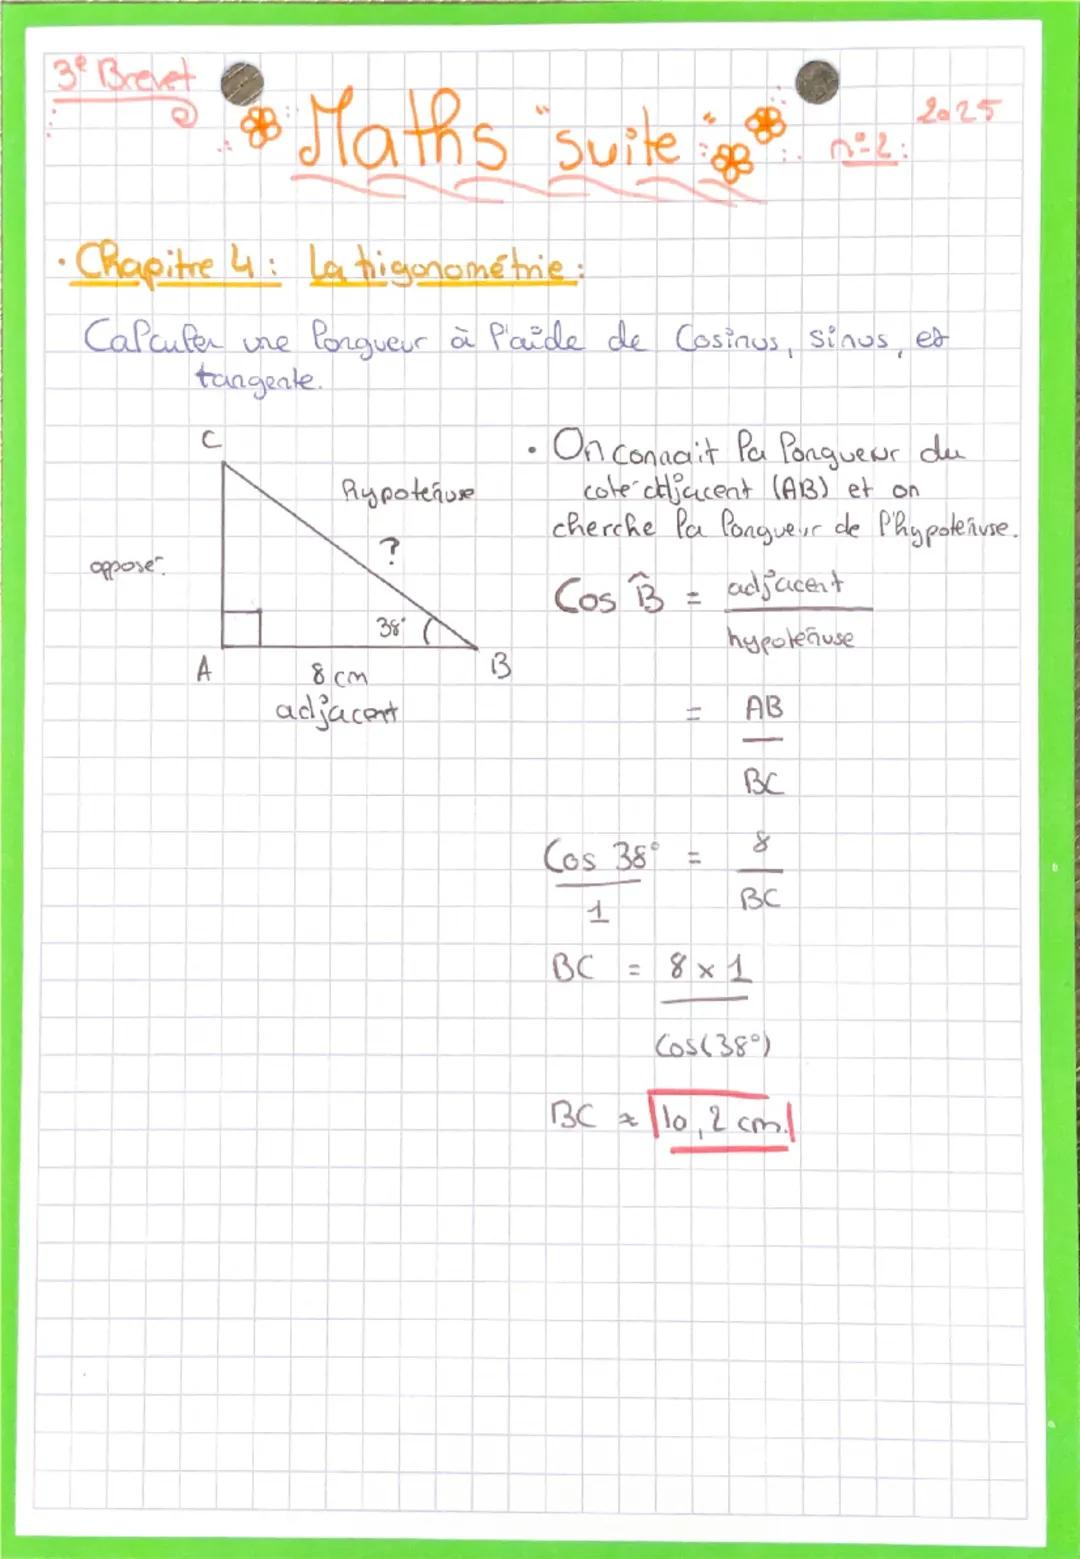 3e Brevet
Maths "suite"
n°2:
2025
· Chapitre 4 : La trigonométrie :
Calculer une longueur à l'aide de Cosinus, sinus, et
tangente.
C
hypoténuse
?
opposé
38°
A
8 cm
B
adjacent
· On connait la longueur du
coté adjacent (AB) et on
cherche la longueur de l'hypoténuse.
Cos B̂ = adjacent
hypoténuse
= AB
BC
Cos 38° = 8
1 BC
BC = 8 × 1
Cos(38°)
BC ≈ 10,2 cm.